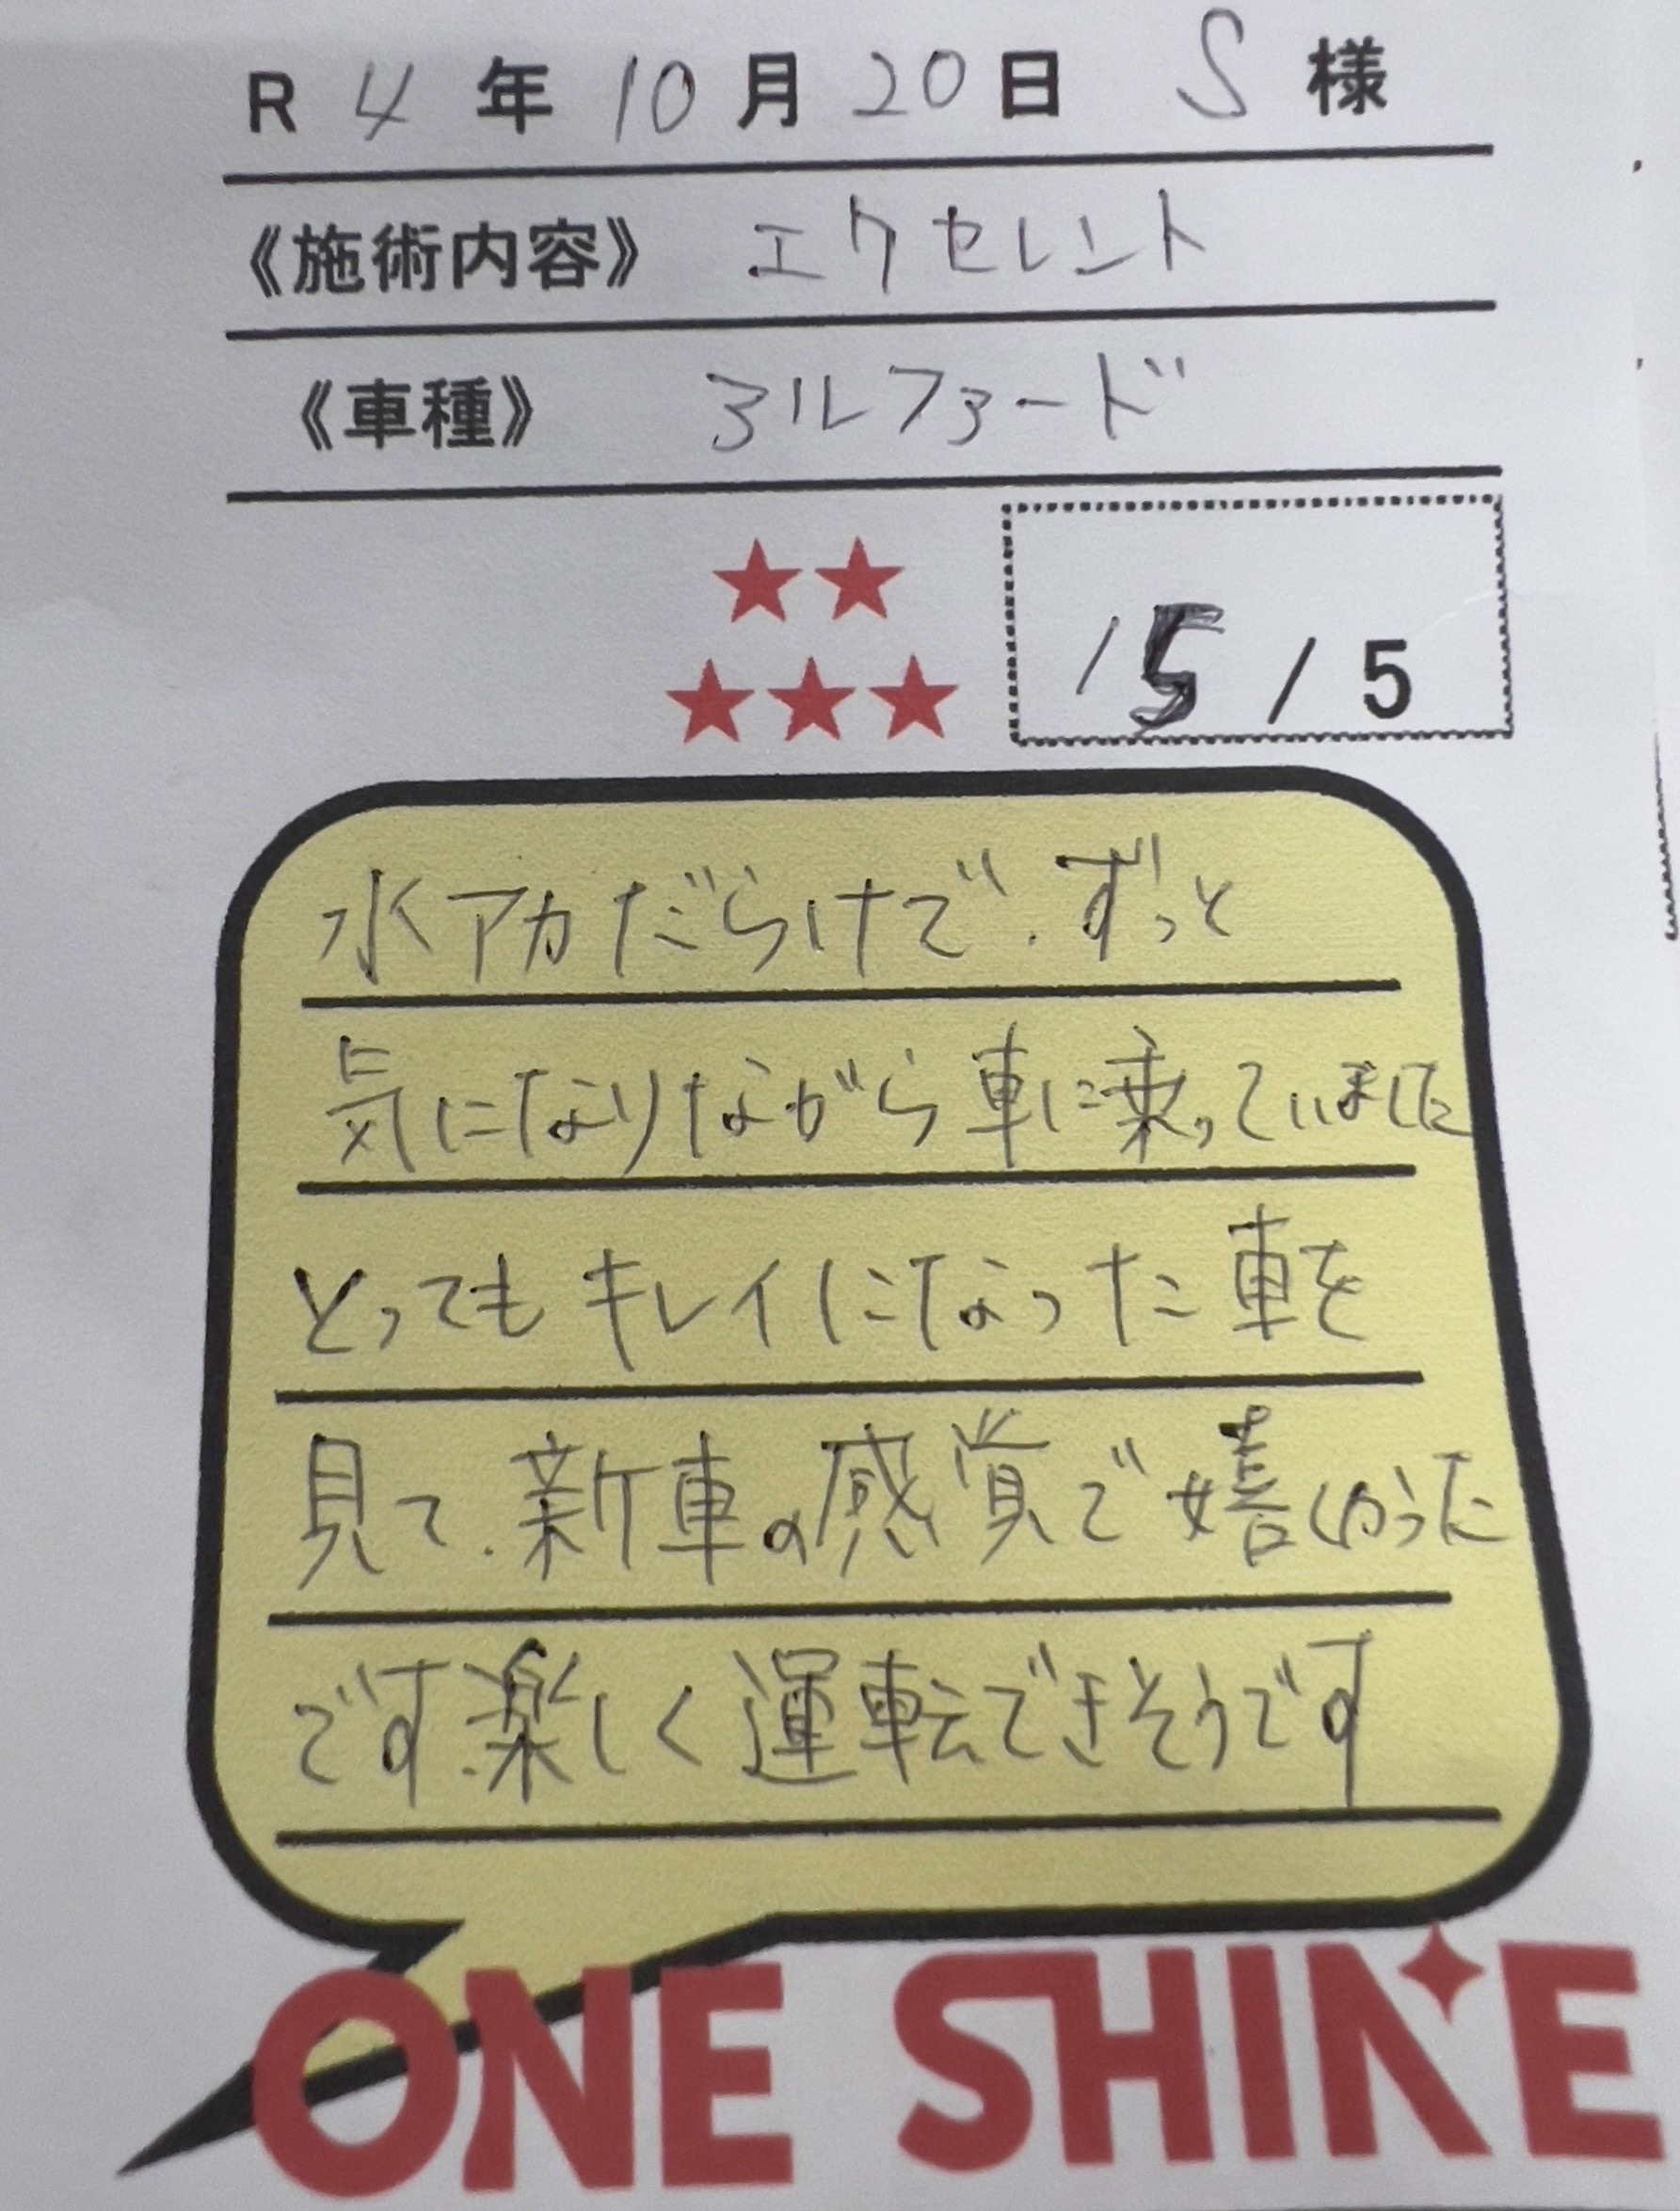 R 4 年 10 月 20 日 S 様
《施術内容》 エクセレント
《車種》 アルファード
15 / 5
水アカだらけで、ずっと
気になりながら車に乗っていました
とってもキレイになった車を
見て、新車の感覚で嬉しかった
です。楽しく運転できそうです
ONE SHINE